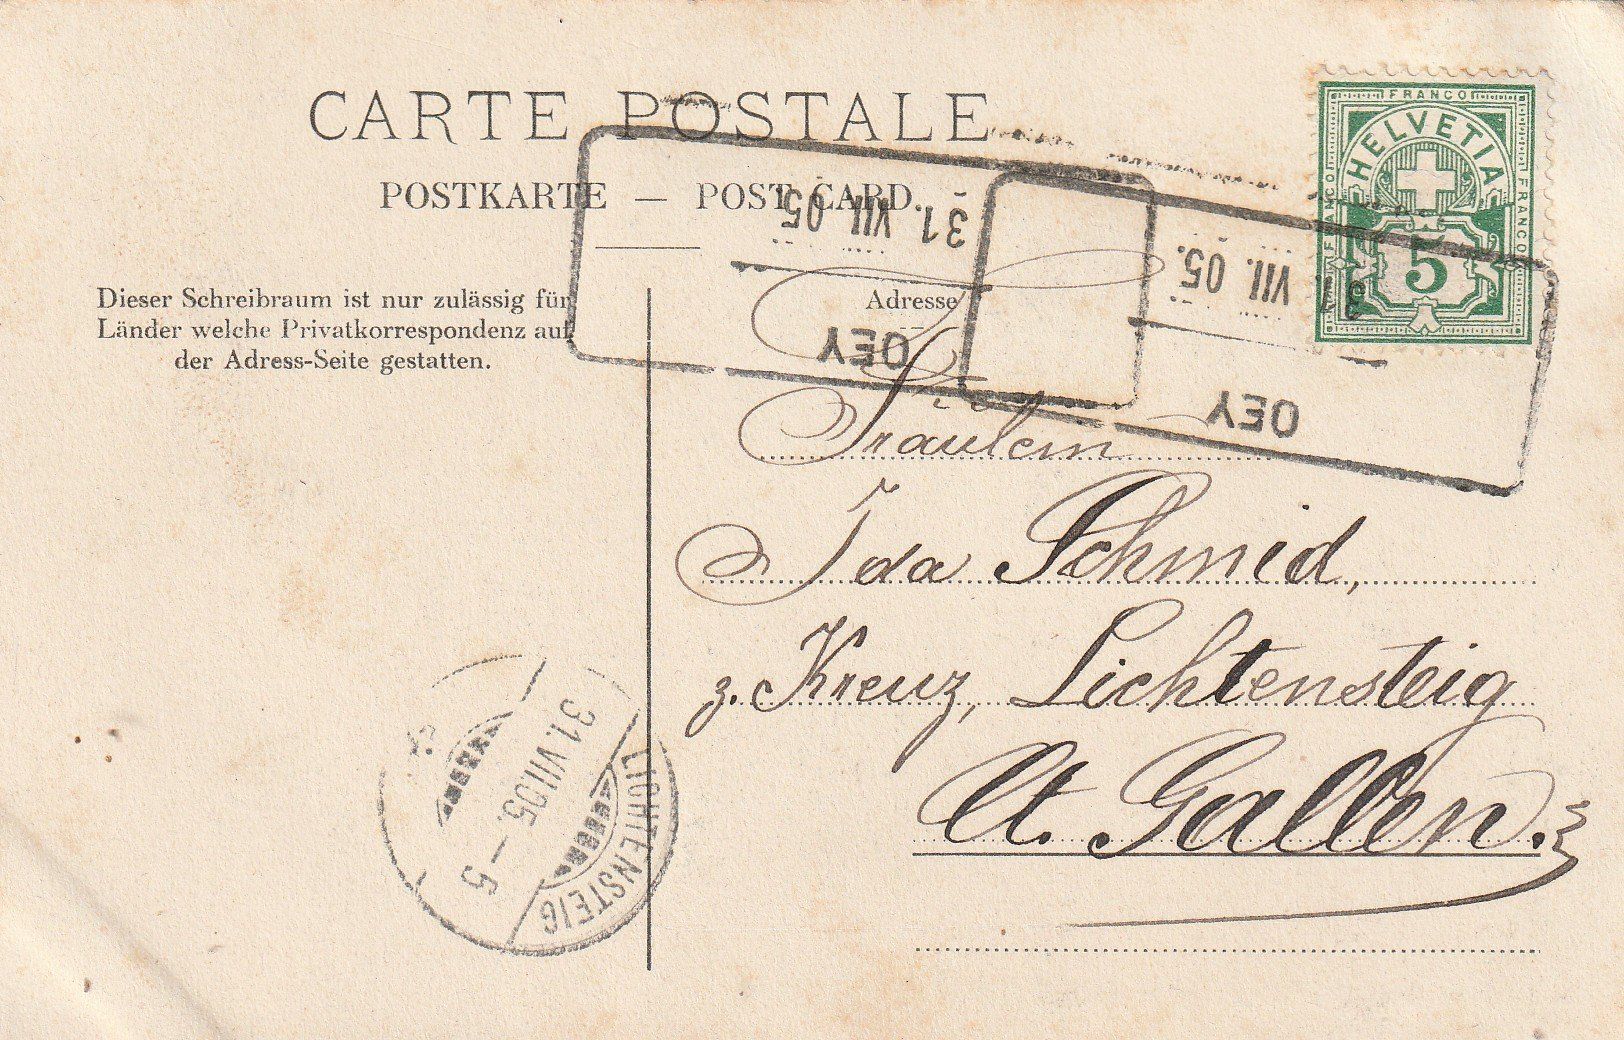 CARTE POSTALE
POSTKARTE — POST CARD.
Dieser Schreibraum ist nur zulässig für
Länder welche Privatkorrespondenz auf
der Adress-Seite gestatten.
Adresse
FRANCO
FRANCO
FRANCO
HELVETIA
5
31. VII. 05
OEY
31. VII. 05.
OEY
Fräulein
Ida Schmid,
z. Kreuz, Lichtensteig
Ct. Gallen.
31.VII.05.–5
LICHTENSTEIG